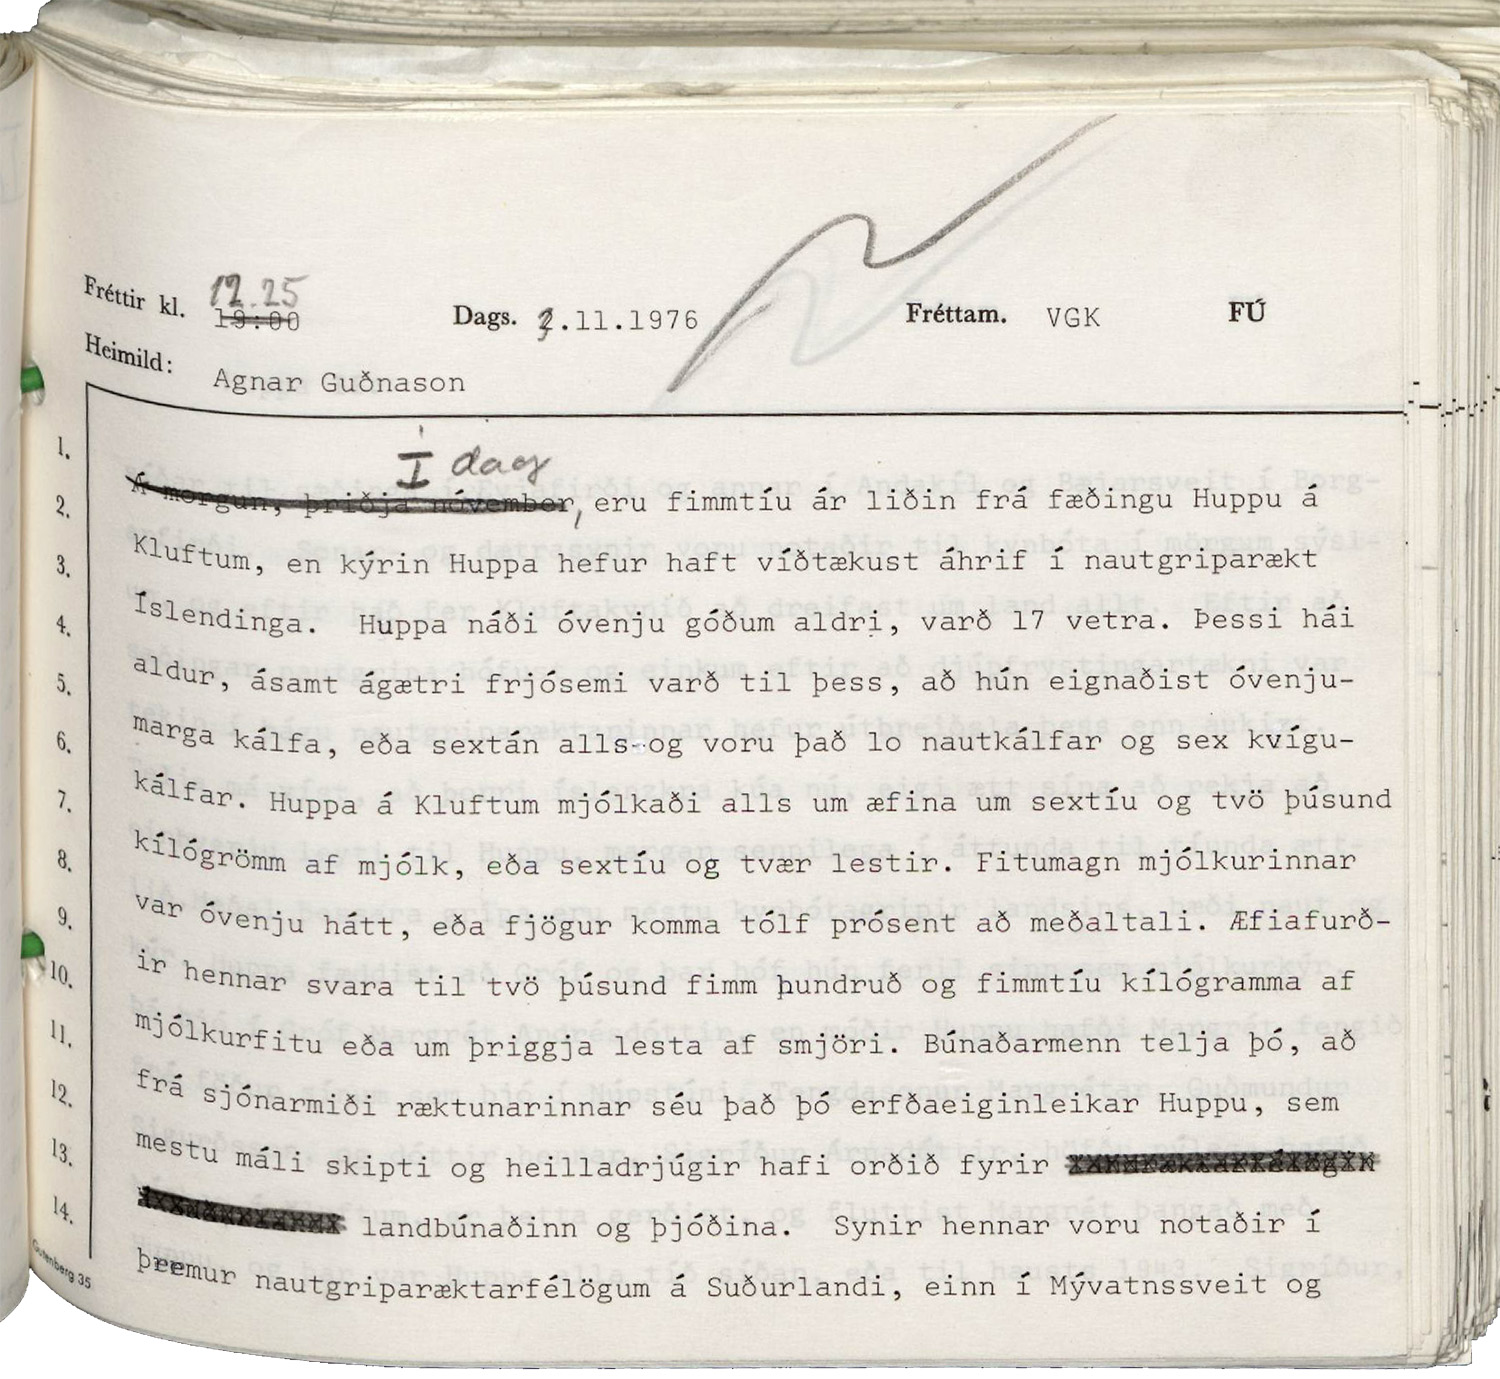 Fréttir kl. 12.25
19:00
Dags. 2.11.1976
Fréttam. VGK FÚ
Heimild: Agnar Guðnason
1. Í dag
2. Á morgun, þriðja nóvember, eru fimmtíu ár liðin frá fæðingu Huppu á
3. Kluftum, en kýrin Huppa hefur haft víðtækust áhrif í nautgriparækt
4. Íslendinga. Huppa náði óvenju góðum aldri, varð 17 vetra. Þessi hái
5. aldur, ásamt ágætri frjósemi varð til þess, að hún eignaðist óvenju-
6. marga kálfa, eða sextán alls--og voru það lo nautkálfar og sex kvígu-
7. kálfar. Huppa á Kluftum mjólkaði alls um æfina um sextíu og tvö þúsund
8. kílógrömm af mjólk, eða sextíu og tvær lestir. Fitumagn mjólkurinnar
9. var óvenju hátt, eða fjögur komma tólf prósent að meðaltali. Æfiafurð-
10. ir hennar svara til tvö þúsund fimm hundruð og fimmtíu kílógramma af
11. mjólkurfitu eða um þriggja lesta af smjöri. Búnaðarmenn telja þó, að
12. frá sjónarmiði ræktunarinnar séu það þó erfðaeiginleikar Huppu, sem
13. mestu máli skipti og heilladrjúgir hafi orðið fyrir
14. landbúnaðinn og þjóðina. Synir hennar voru notaðir í
þremur nautgriparæktarfélögum á Suðurlandi, einn í Mývatnssveit og
Gutenberg 35